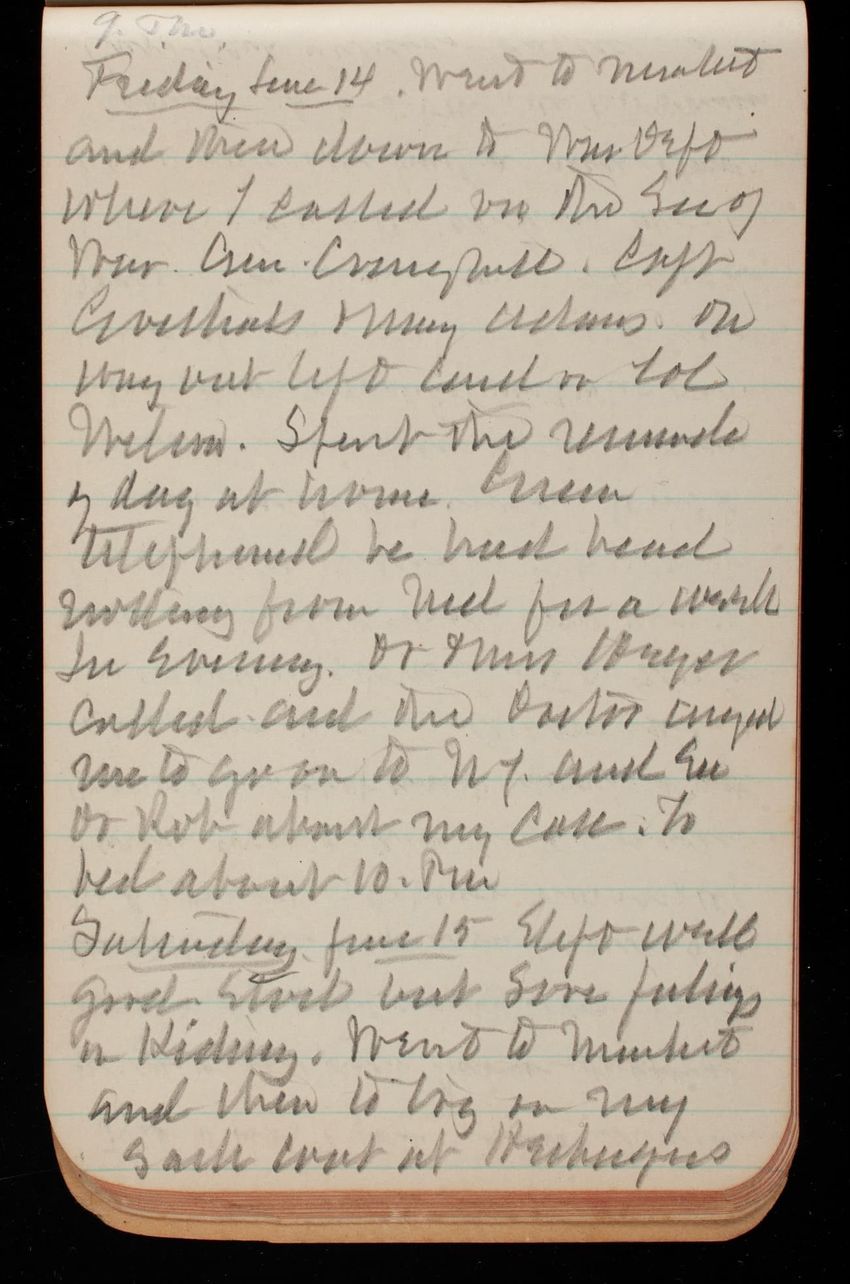 9. Pm.
Friday June 14. Went to market
and then down to War Dept
where I called on the Sec of
War. Gen. Craighill. Capt
Goethals & May Adams. On
way out left card on Col
Wilson. Spent the remainde
of day at home. Green
telephoned he had head
nothing from Ned for a week
In Evening. Dr & Miss
called and the Doctor urged
me to go on to N.Y. and See
Dr Rob about my case. To
bed about 10. Pm
Saturday June 15 Slept well
good Stool but Sore feelings
in Kidney. Went to market
and then to try on my
Sack coat at